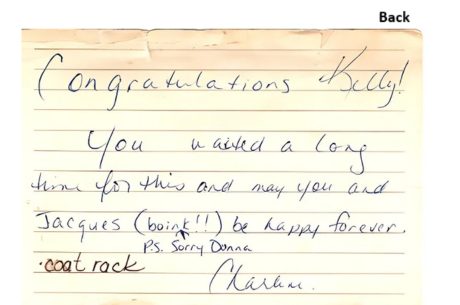 Back
Congratulations Kelly!
You waited a long
time for this and may you and
Jacques (boink!!) be happy forever.
P.S. Sorry Donna
·coat rack
Charlene.